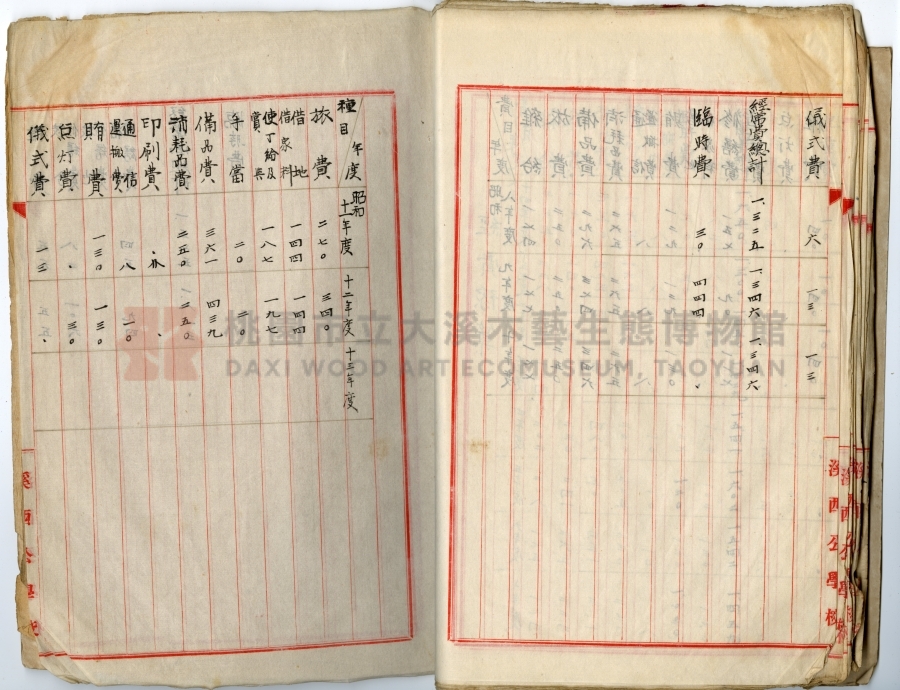 儀式費 六 一三 一三
經常費總計 一、三二五 一、三四六 一、三四六
臨時費 三〇 四四四 、
溪西公學校
種目 年度 昭和十一年度 十二年度 十三年度
旅費 二七〇 三四〇
借地借家料 一四四 一四四
使丁給及賞與 一八七 一九七
手當 二〇 二〇
備品費 三六一 四三九
消耗品費 二五〇 二五〇
印刷費
通信運搬費 八 一〇
賄費 一三〇 一三〇
灯費 、 三〇
儀式費 一三
溪西公學校
桃園市立大溪木藝生態博物館
DAXI WOOD ART ECOMUSEUM, TAOYUAN